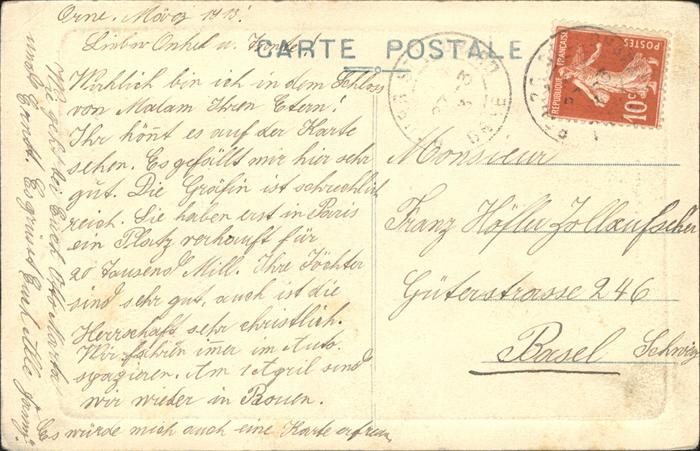 Orne. März 1913!
Lieber Onkel u. Tante!
CARTE POSTALE
Wirklich bin ich in dem Schloss
von Madam Ihren Etern!
Ihr könt es auf der Karte
sehen. Es gefällt mir hier sehr
gut. Die Gräfin ist schrecklich
reich. Sie haben erst in Paris
ein Platz verkauft für
20 tausend Mill. Ihre Töchter
sind sehr gut, auch ist die
Herrschaft sehr christlich.
Wir fahren immer im Auto
spazieren. Am 1 April sind
wir wieder in Rouen.
Es würde mich auch eine Karte erfreun
Wie geht es bei Euch Otto Martha
wohl Ernst. Es grüsst Euch Alle
REPUBLIQUE FRANÇAISE
POSTES
10c
ORNE
Monsieur
Franz Höfler Zollaufseher
Güterstrasse 246
Basel Schweiz